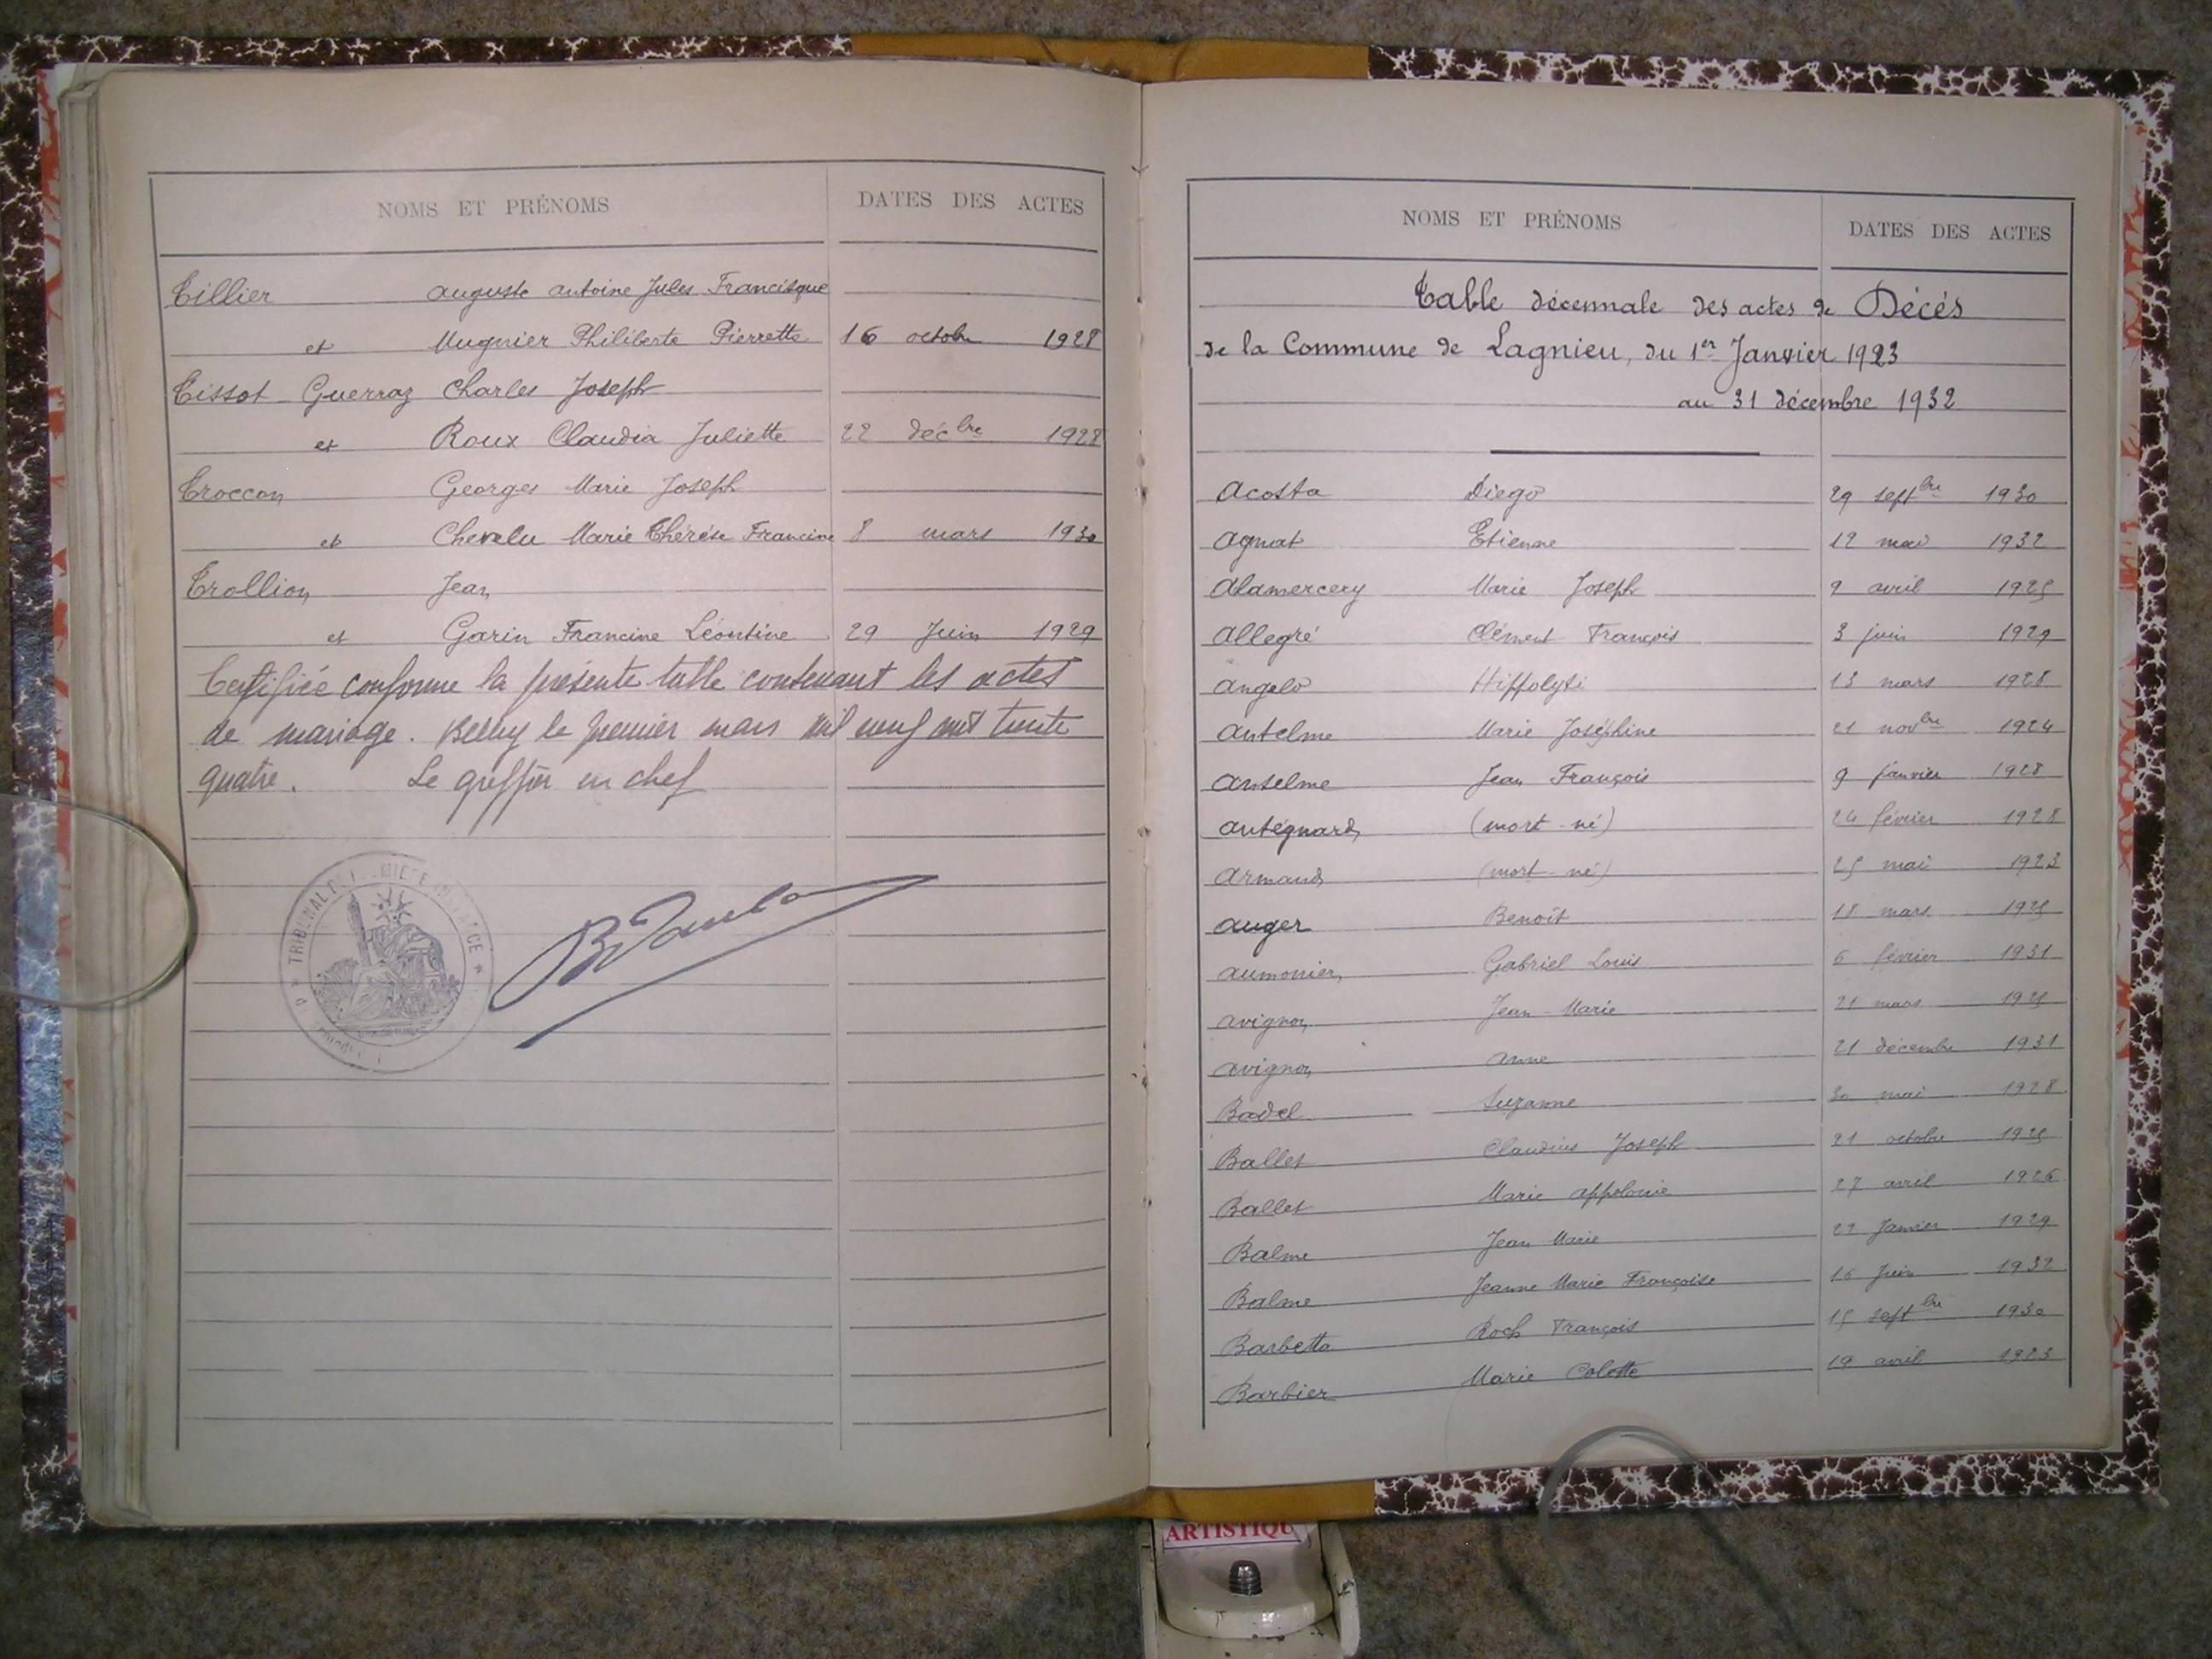 NOMS ET PRÉNOMS DATES DES ACTES
Tillier Auguste Antoine Jules Francisque
et Mugnier Philiberte Pierrette 16 octobre 1928
Tissot-Guerraz Charles Joseph
et Roux Claudia Juliette 22 décbre 1928
Troccon Georges Marie Joseph
et Chevelu Marie Thérèse Francine 8 mars 1930
Trollion Jean
et Garin Francine Léontine 29 Juin 1929
Certifiée conforme la présente table contenant les actes
de mariage. Belley le premier mars mil neuf cent trente
quatre. Le greffier en chef
TRIBUNAL DE PREMIERE INSTANCE
NOMS ET PRÉNOMS DATES DES ACTES
Table décennale des actes de Décés
de la Commune de Lagnieu, du 1er Janvier 1923
au 31 décembre 1932
Acosta Diego 29 septbre 1930
Agnat Etienne 12 mai 1932
Alamercery Marie Joseph 2 avril 1925
Allegré Clément François 3 juin 1929
Angelo Hippolyte 13 mars 1928
Antelme Marie Joséphine 21 novbre 1924
Anselme Jean François 9 janvier 1928
Antégnard (mort-né) 24 février 1928
Armand (mort-né) 25 mai 1923
Auger Benoît 18 mars 1925
Aumonier Gabriel Louis 6 février 1931
Avignon Jean-Marie 21 mars 1925
Avignon Anne 21 décembre 1931
Badel Suzanne 30 mai 1928
Ballet Claudius Joseph 21 octobre 1925
Ballet Marie Appolonie 27 avril 1926
Balme Jean Marie 22 Janvier 1929
Balme Jeanne Marie Françoise 16 Juin 1932
Barbette Roch François 15 septbre 1930
Barbier Marie Colette 19 avril 1923
ARTISTIQU